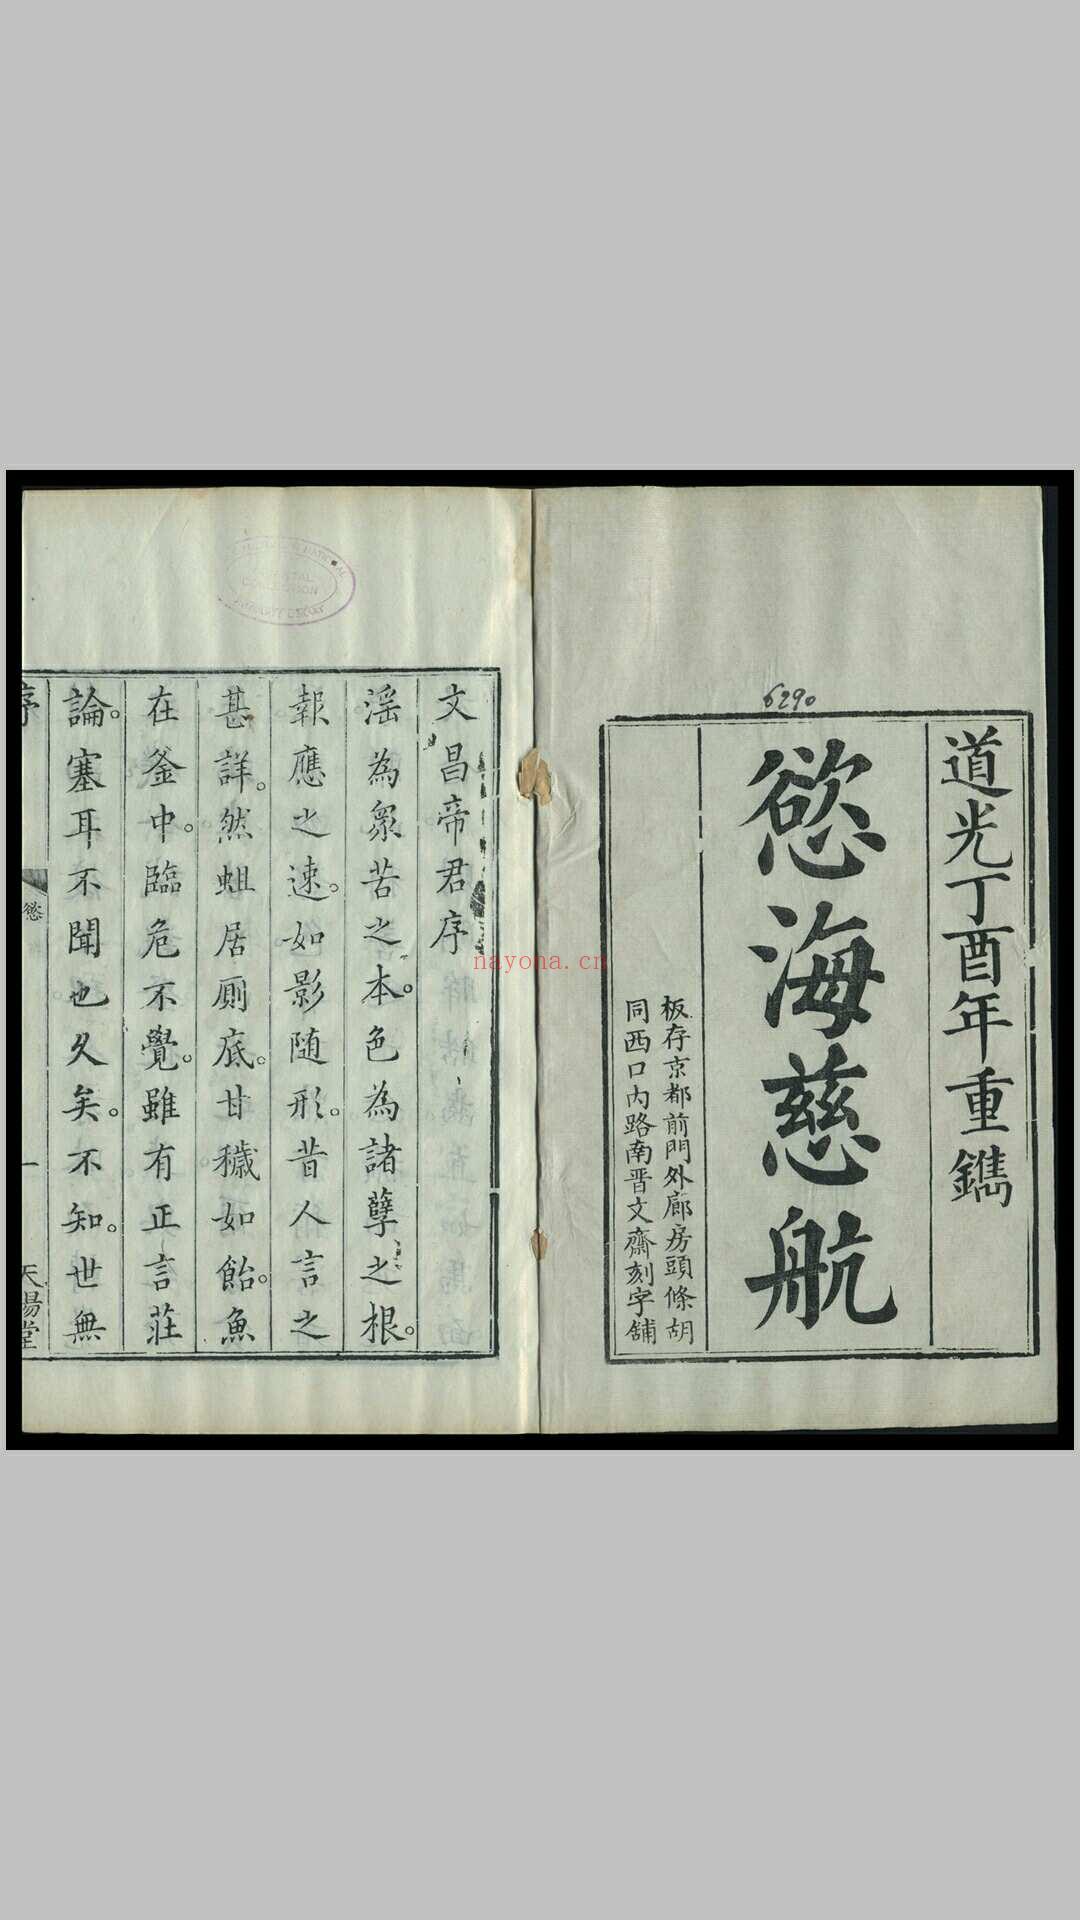 6290
道光丁酉年重鐫
慾海慈航
板存京都前門外廊房頭條胡
同西口內路南晋文齋刻字舖
文昌帝君序
淫為衆苦之本。色為諸孽之根。
報應之速。如影随形。昔人言之
甚詳。然蛆居厠底。甘穢如飴。魚
在釜中。臨危不覺。雖有正言莊
論。塞耳不聞也久矣。不知。世無
慾
序
一
天陽堂
nayona.cn